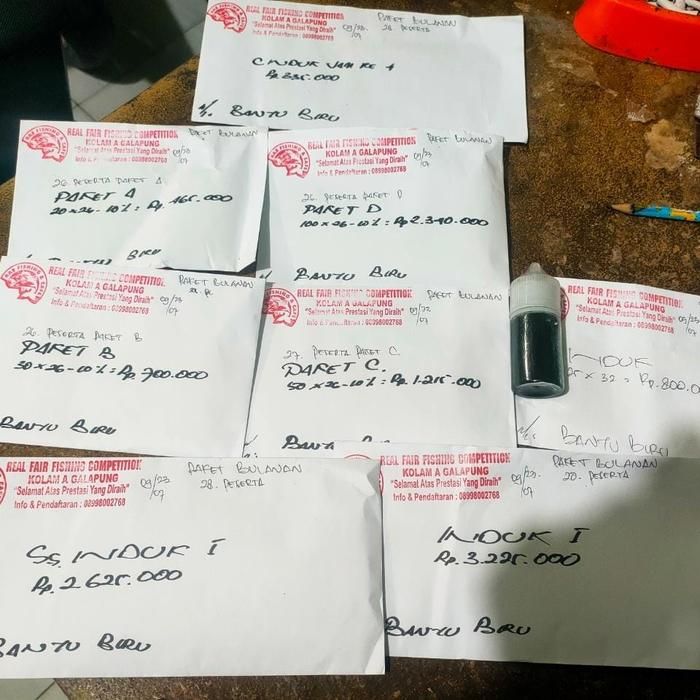 REAL FAIR FISHING COMPETITION
KOLAM A GALAPUNG
"Selamat Atas Prestasi Yang Diraih"
Info & Pendaftaran : 08998002768
PAKET BULANAN
28. PESERTA
09/23
/07
CINDUK JAM KE 1
Rp 335.000
BANTU BIRU
REAL FAIR FISHING COMPETITION
KOLAM A GALAPUNG
"Selamat Atas Prestasi Yang Diraih"
Info & Pendaftaran : 08998002768
PAKET BULANAN
09/23
/07
26. PESERTA PAKET A
PAKET A
20x26-10% = Rp. 465.000
BIRU
REAL FAIR FISHING COMPETITION
KOLAM A GALAPUNG
"Selamat Atas Prestasi Yang Diraih"
Info & Pendaftaran : 08998002768
PAKET BULANAN
09/23
/07
26. PESERTA PAKET D
PAKET D
100x26-10% = Rp 2.340.000
BANTU BIRU
FAIR FISHING COMPETITION
KOLAM A GALAPUNG
"Selamat Atas Prestasi Yang Diraih"
Info & Pendaftaran : 08998002768
PAKET BULANAN
09/23
/07
26. PESERTA PAKET B
PAKET B
30x26-10% = Rp. 700.000
BANTU BIRU
REAL FAIR FISHING COMPETITION
KOLAM A GALAPUNG
"Selamat Atas Prestasi Yang Diraih"
08998002768
PAKET BULANAN
09/23
/07
27. PESERTA PAKET C.
PAKET C.
50x26-10% = Rp. 1.215.000
BANTU BIRU
FAIR FISHING COMPETITION
KOLAM A GALAPUNG
"Selamat Atas Prestasi Yang Diraih"
Info & Pendaftaran : 08998002768
PAKET BULANAN
09/23
/07
INDUK
25 x 32 = Rp. 800.0
BANTU BIRU
REAL FAIR FISHING COMPETITION
KOLAM A GALAPUNG
"Selamat Atas Prestasi Yang Diraih"
Info & Pendaftaran : 08998002768
PAKET BULANAN
28. PESERTA
09/23
/07
SS. INDUK I
Rp. 2.625.000
BANTU BIRU
REAL FAIR FISHING COMPETITION
KOLAM A GALAPUNG
"Selamat Atas Prestasi Yang Diraih"
Info & Pendaftaran : 08998002768
PAKET BULANAN
28. PESERTA
09/23
/07
INDUK I
Rp. 3.225.000
BANTU BIRU